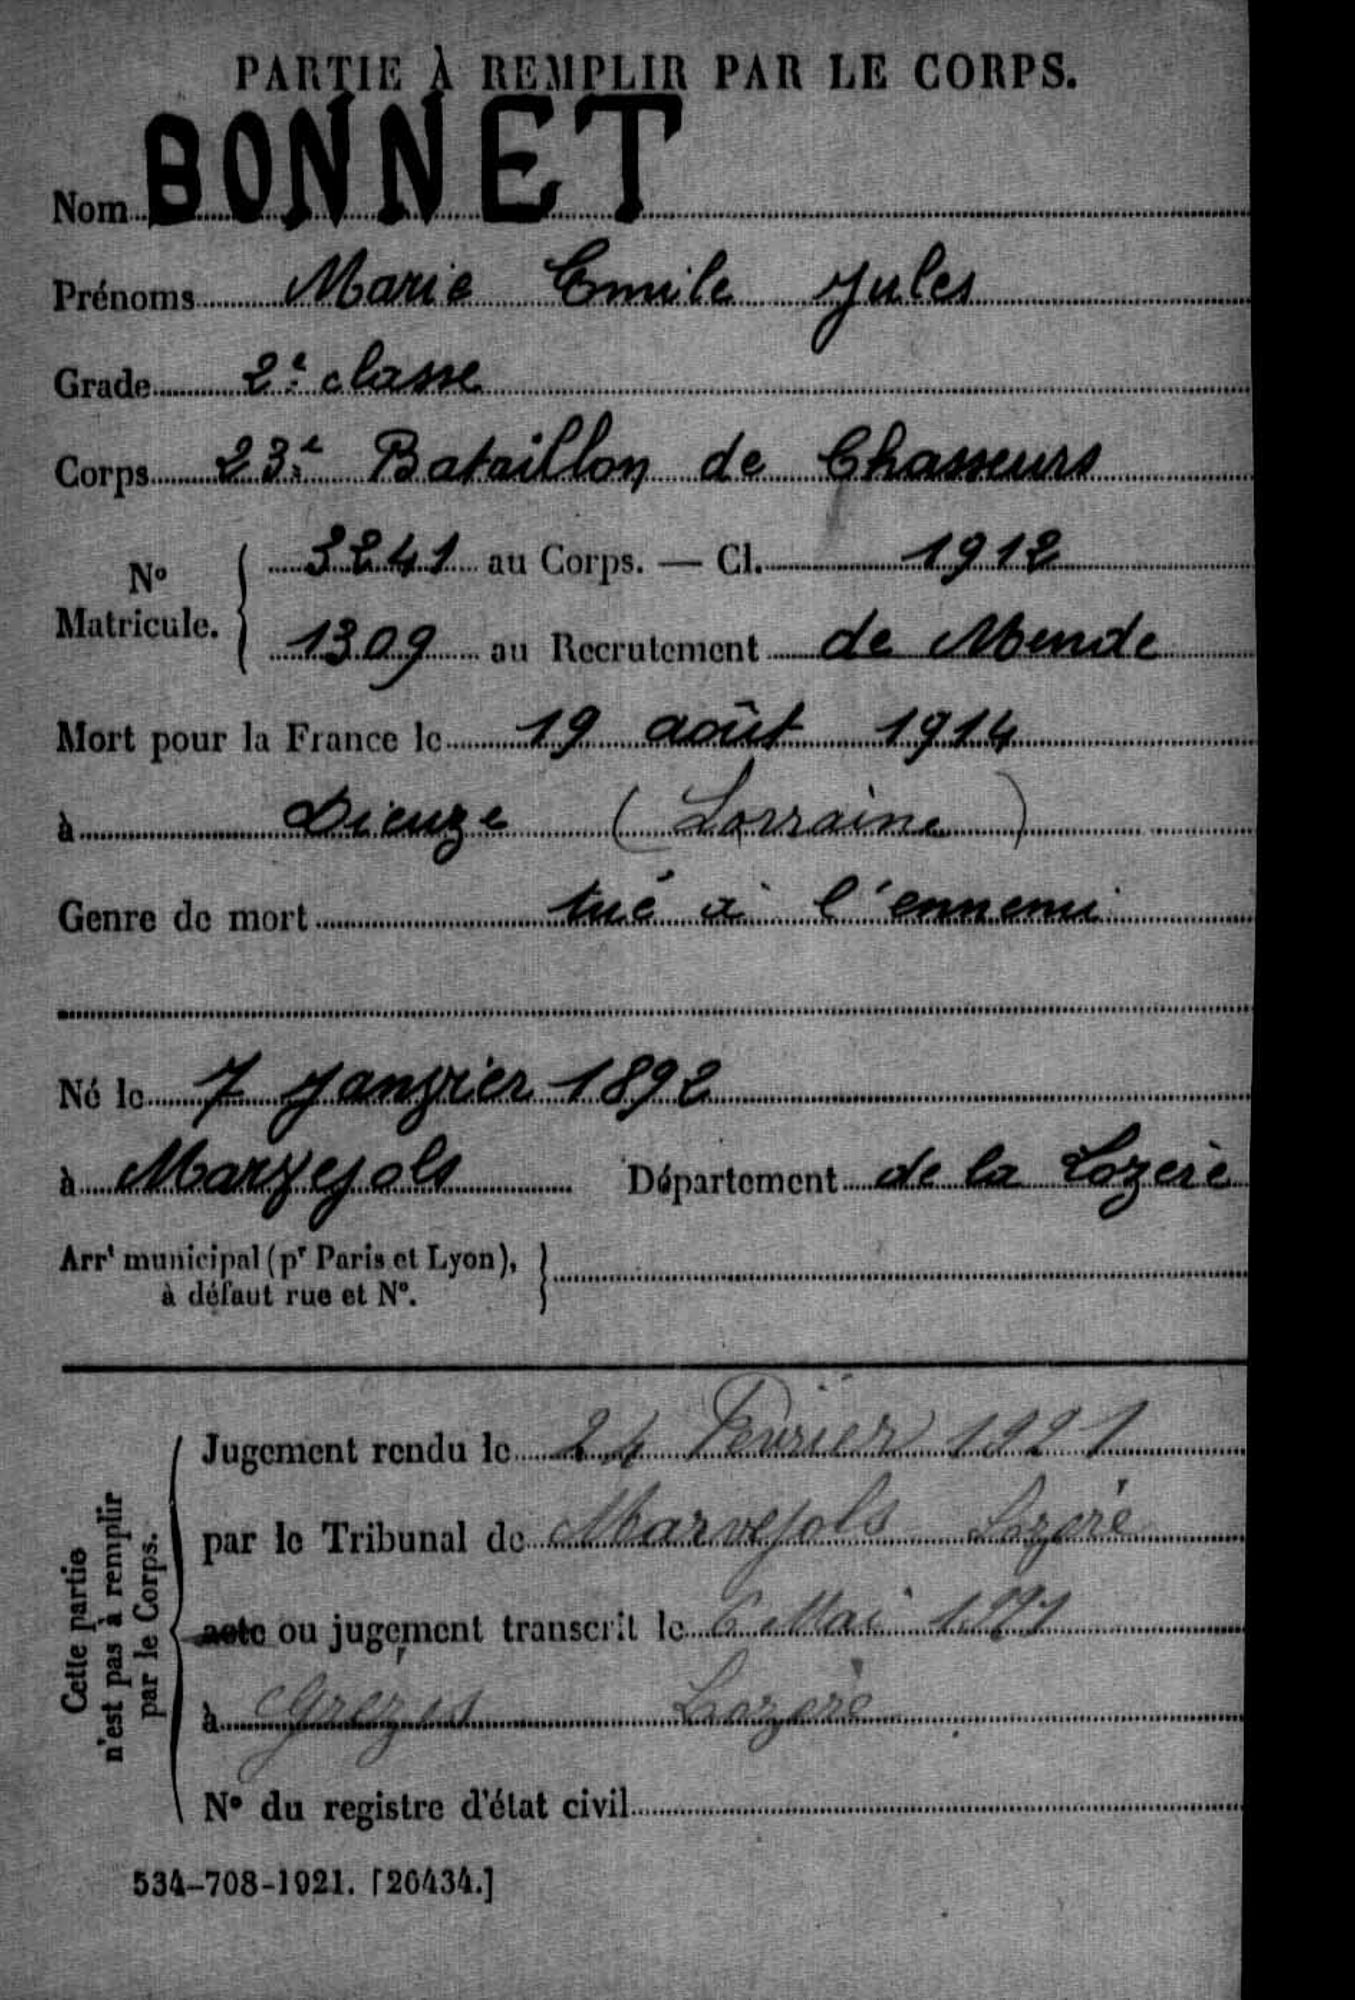 PARTIE À REMPLIR PAR LE CORPS.
Nom BONNET
Prénoms Marie Emile Jules
Grade 2e classe
Corps 23e Bataillon de Chasseurs
No Matricule. { 3241 au Corps. — Cl. 1912
1309 au Recrutement de Mende
Mort pour la France le 19 août 1914
à Dieuze (Lorraine)
Genre de mort tué à l'ennemi
Né le 7 Janvier 1892
à Marvejols Département de la Lozère
Arrt municipal (pr Paris et Lyon), }
à défaut rue et No.
Cette partie
n'est pas à remplir
par le Corps.
Jugement rendu le 24 Février 1921
par le Tribunal de Marvejols Lozère
acte ou jugement transcrit le 6 Mai 1921
à Grezes Lozère
No du registre d'état civil
534-708-1921. [26434.]